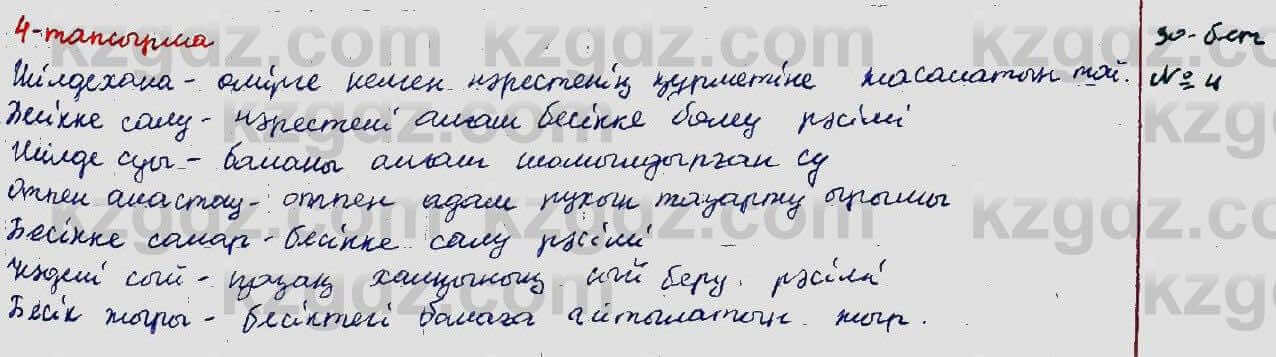 4-тапсырма
90-бет
№ 4
Шілдехана - өмірге келген нәрестенің құрметіне жасалатын той.
Бесікке салу - нәрестені алғаш бесікке бөлеу рәсімі
Шілде суы - баланы алғаш шомылдырған су
Отпен аластау - отпен адам рухын тазарту ырымы
Бесікке салар - бесікке салу рәсімі
сый - қазақ халқының сый беру рәсімі
Бесік жыры - бесіктегі балаға айтылатын жыр.
kzgdz.com kzgdz.com kzgdz.com